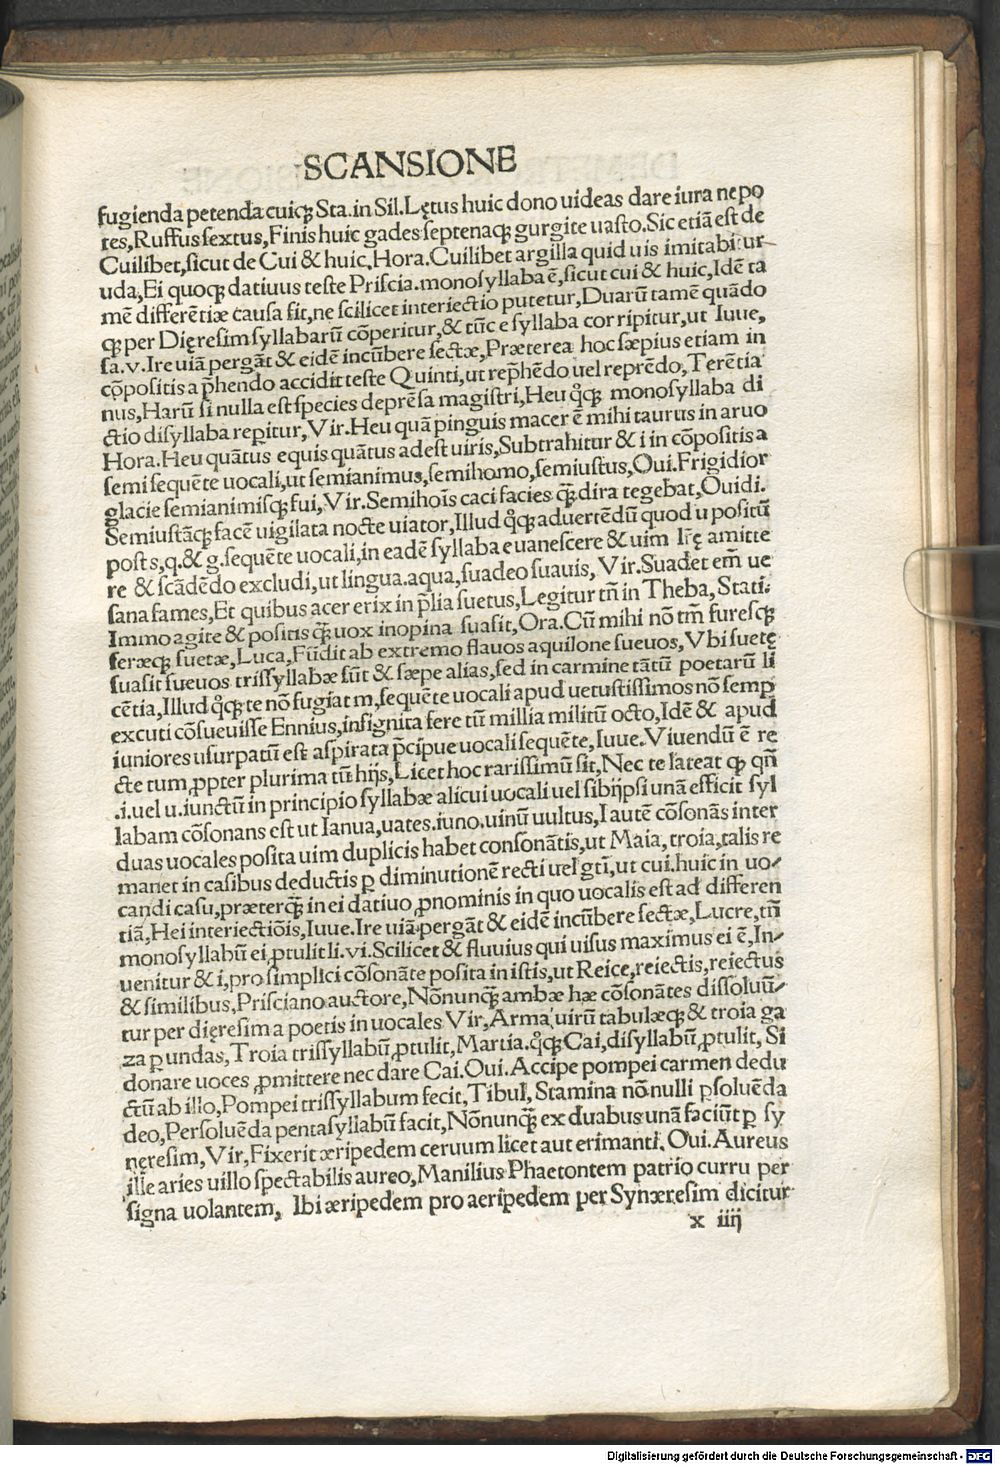 SCANSIONE
fugienda petenda cuiqꝫ Sta.in Sil.Lętus huic dono uideas dare iura nepo
tes,Ruffus sextus,Finis huic gades septenaqꝫ gurgite uasto.Sic etiā est de
Cuilibet,sicut de Cui & huic.Hora.Cuilibet argilla quid uis imitabitur
uda,Ei quoqꝫ datiuus teste Priscia.monosyllaba ē,sicut cui & huic,Idē ta
mē differētiæ causa fit,ne scilicet interiectio putetur,Duarū tamē quādo
qꝫ per Dięresim syllabarū cōperitur,& tūc e syllaba corripitur,ut Iuue,
sa.v.Ire uiā pergāt & eidē incūbere sectæ,Præterea hoc sæpius etiam in
cōpositis a p̄hendo accidit teste Quinti,ut rep̄hēdo uel reprēdo,Terētia
nus,Harū si nulla est species deprēsa magistri,Heu qꝫ monosyllaba di
ctio disyllaba reperitur,Vir.Heu quā pinguis macer ē mihi taurus in aruo
Hora.Heu quātus equis quātus adest uiris,Subtrahitur & i in cōpositis a
semi sequēte uocali,ut semianimus,semihomo,semiustus,Oui.Frigidior
glacie semianimisqꝫ fui,Vir.Semihoīs caci facies qꝫ dira tegebat,Ouidi.
Semiustāqꝫ facē uigilata nocte uiator,Illud qꝫ aduertēdū quod u positū
post s,q.& g.sequēte uocali,in eadē syllaba euanescere & uim lr̄ę amitte
re & scādēdo excludi,ut lingua.aqua,suadeo suauis, Vir.Suadet em̄ ue
sana fames,Et quibus acer erix in p̄lia suetus,Legitur tn̄ in Theba,Stati.
Immo agite & positis qꝫ uox inopina suasit,Ora.Cū mihi nō tm̄ furesqꝫ
feræqꝫ suetæ,Luca,Fūdit ab extremo flauos aquilone sueuos,Vbi suetę
suasit sueuos trissyllabæ sūt & sæpe alias,sed in carmine tātū poetarū li
cētia,Illud qꝫ te nō fugiat m,sequēte uocali apud uetustissimos nō semp
excuti cōsueuisse Ennius,insignita fere tū millia militū octo,Idē & apud
iuniores usurpatū est aspirata p̄cipue uocali sequēte,Iuue.Viuendū ē re
cte tum,ꝓpter plurima tū hijs,Licet hoc rarissimū sit,Nec te lateat qꝫ qn̄
.i.uel u.iunctū in principio syllabæ alicui uocali uel sibijpsi unā efficit syl
labam cōsonans est ut Ianua,uates.iuno.uinū uultus,I autē cōsonās inter
duas uocales posita uim duplicis habet consonātis,ut Maia,troia,talis re
manet in casibus deductis ꝑ diminutionē recti uel gti,ut cui.huic in uo
candi casu,præterqꝫ in ei datiuo ꝓnominis in quo uocalis est ad differen
tiā,Hei interiectiōis,Iuue.Ire uiā pergāt & eidē incūbere sectæ,Lucre,tn̄
monosyllabū ei ꝓtulit li.vi.Scilicet & fluuius qui uisus maximus ei ē,In
uenitur & i,pro simplici cōsonāte posita in istis,ut Reice,reiectis,reiectus
& similibus,Prisciano auctore,Nōnunqꝫ ambæ hæ cōsonātes dissoluū
tur per dięresim a poetis in uocales Vir,Arma uirū tabulæqꝫ & troia ga
za ꝑ undas,Troia trissyllabū ꝓtulit,Martia.qꝫ Cai,disyllabū ꝓtulit, Si
donare uoces ꝓmittere nec dare Cai.Oui.Accipe pompei carmen dedu
ctū ab illo,Pompei trissyllabum fecit,Tibul,Stamina nō nulli ꝑsoluēda
deo,Persoluēda pentasyllabū facit,Nōnunqꝫ ex duabus unā faciūt ꝑ sy
neresim,Vir,Fixerit æripedem ceruum licet aut erimanti.Oui.Aureus
ille aries uillo spectabilis aureo,Manilius Phaetontem patrio curru per
signa uolantem, Ibi æripedem pro aeripedem per Synæresim dicitur
x iiij
Digitalisierung gefördert durch die Deutsche Forschungsgemeinschaft - DFG